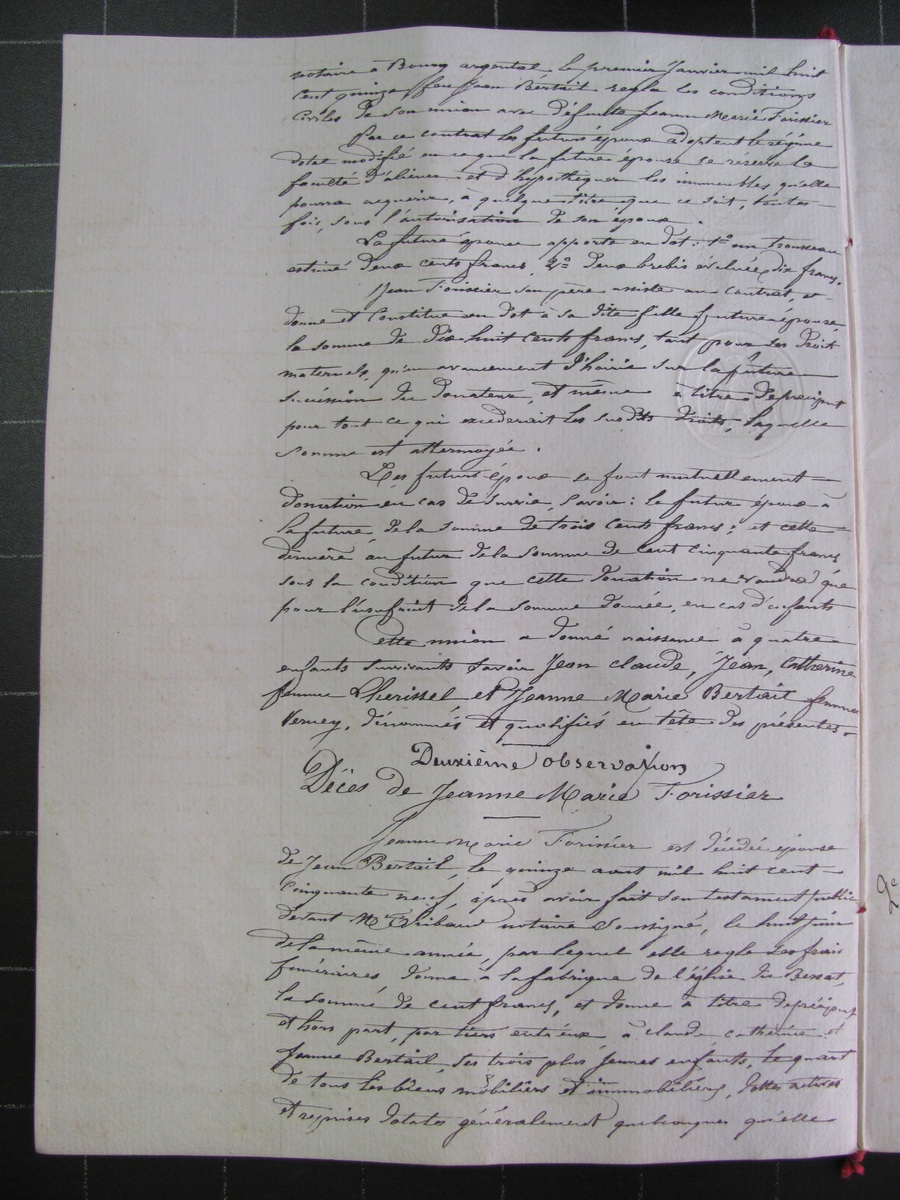 notaire à Bourg argental le premier Janvier mil huit
cent quinze, feu Jean Bertail regla les conditions
civiles de son union avec défunte Jeanne Marie Forissier
Par ce contrat les futurs époux adoptent le régime
dotal modifié en ce que la future épouse se réserve la
faculté d'aliéner et d'hypothéquer les immeubles qu'elle
pourra acquérir, à quelque titre que ce soit, toute
fois, sous l'autorisation de son époux.
La future épouse apporte en dot: 1º un trousseau
estimé deux cents francs, 2º deux brebis évaluées dix francs.
Jean Forissier son père assiste au contrat, et
donne et constitue en dot à sa dite fille future épouse
la somme de dix huit cents francs, tant pour ses droit
maternels, qu'en avancement d'hoirie sur la future
succession du donateur, et même à titre de préciput
pour tout ce qui excéderait les susdits droits, laquelle
somme est attermoyée.
Les futurs époux se font mutuellement
donation en cas de survie, savoir: le futur époux à
la future, de la somme de trois cents francs; et cette
dernière au futur de la somme de cent cinquante francs
sous la condition que cette donation ne vaudra que
pour l'usufruit de la somme donnée, en cas d'enfants
Cette union a donné naissance à quatre
enfants survivants savoir Jean Claude, Jean, Catherine
femme Lherissel et Jeanne Marie Bertail femme
Verney, dénommés et qualifiés en tête des présentes.
Deuxième observation
Décès de Jeanne Marie Forissier
Jeanne Marie Forissier est décédée épouse
de Jean Bertail, le quinze aout mil huit cent
cinquante neuf, après avoir fait son testament public
devant Me notaire soussigné, le huit juin
de la même année, par lequel elle regle ses frais
funéraires, donne à la fabrique de l'église du Bessat,
la somme de cent francs, et donne à titre de préciput
et hors part, par tiers entr'eux à Claude Catherine et
Jeanne Bertail, ses trois plus jeunes enfants, le quart
de tous les biens mobiliers et immobiliers, dettes actives
et reprises dotales généralement quelconques qu'elle